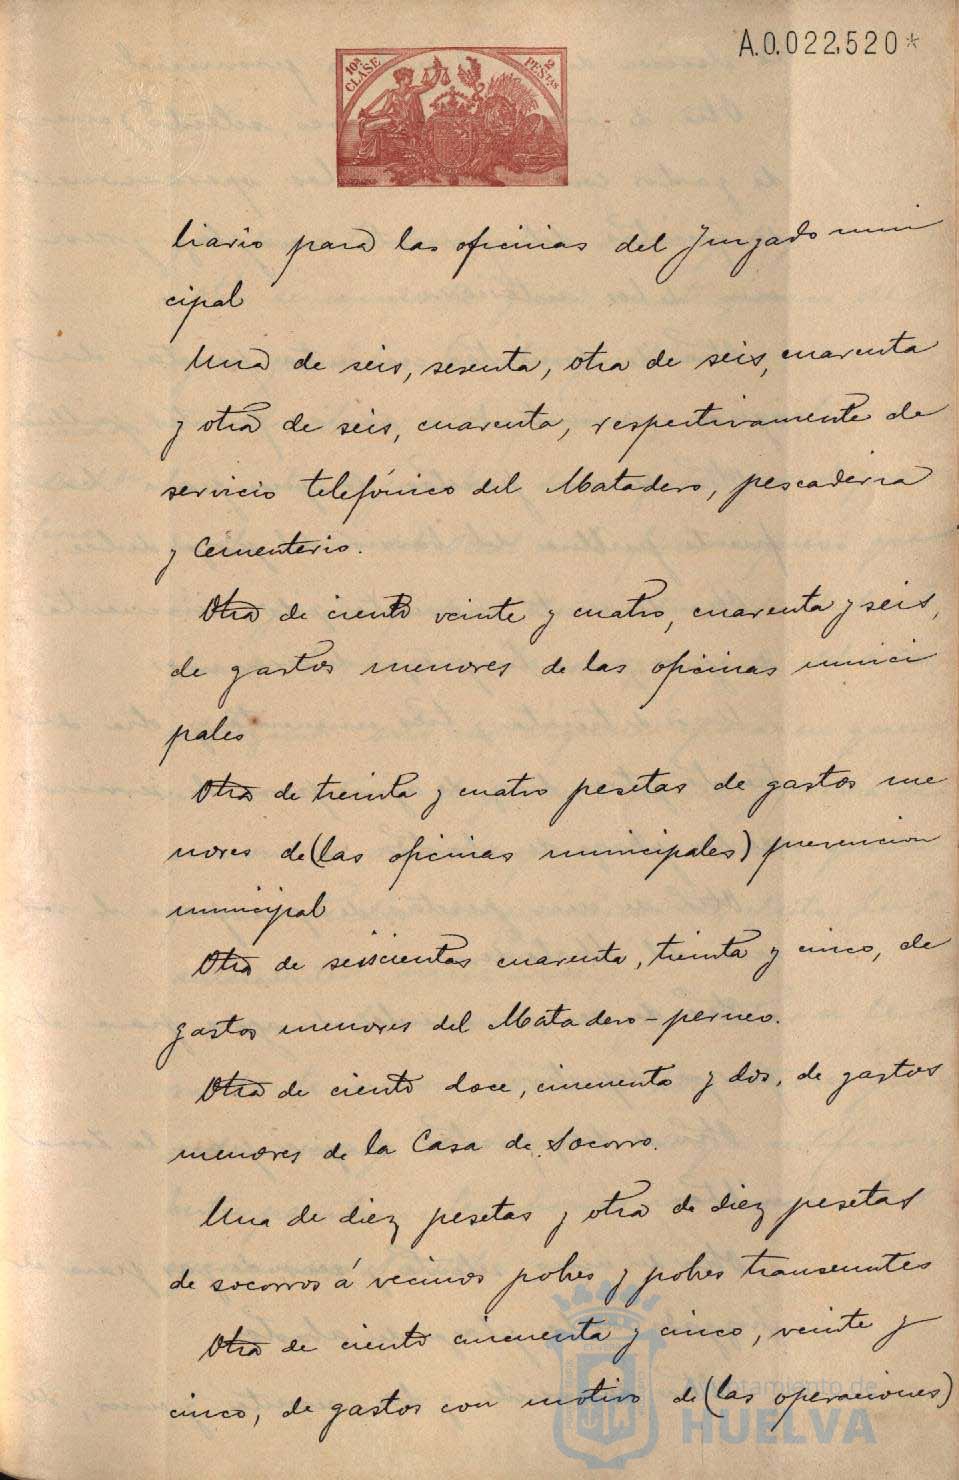 A.0.022,520*
10ª CLASE
2 PESTAS
liario para las oficinas del Juzgado muni
cipal
Una de seis, sesenta, otra de seis, cuarenta
y otra de seis, cuarenta, respectivamente de
servicio telefónico del Matadero, pescaderia
y Cementerio.
Otra de ciento veinte y cuatro, cuarenta y seis,
de gastos menores de las oficinas munici
pales
Otra de treinta y cuatro pesetas de gastos me
nores de (las oficinas municipales) prevencion
municipal
Otra de seiscientas cuarenta, treinta y cinco, de
gastos menores del Matadero-perneo.
Otra de ciento doce, cincuenta y dos, de gastos
menores de la Casa de Socorro.
Una de diez pesetas y otra de diez pesetas
de socorros á vecinos pobres y pobres transeuntes
Otra de ciento cincuenta y cinco, veinte y
cinco, de gastos con motivo de (las operaciones)
Ayuntamiento de
HUELVA